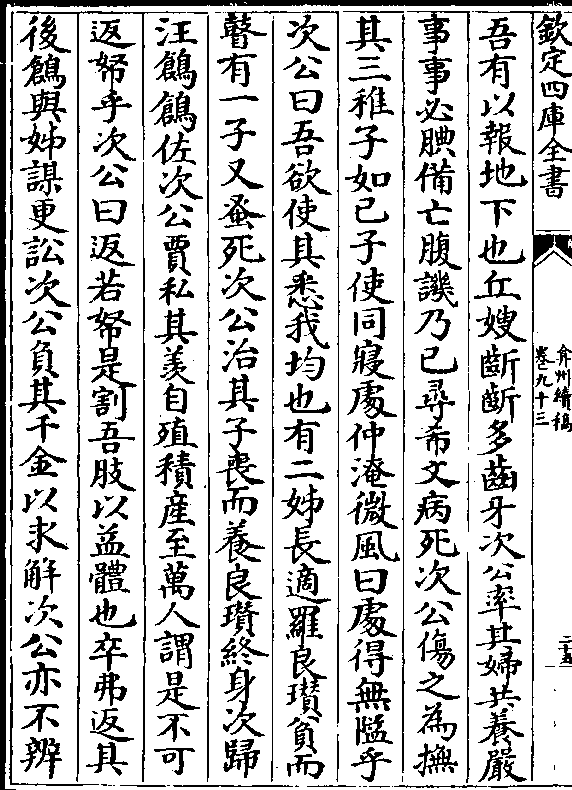 欽定四庫全書
弇州續稿
卷九十三
二十五
吾有以報地下也丘嫂齗齗多齒牙次公率其婦共養嚴
事事必腆備亡腹譏乃已尋希文病死次公傷之為撫
其三稚子如己子使同寢處仲淹微風曰處得無隘乎
次公曰吾欲使其悉我均也有二姊長適羅良瓚負而
瞽有一子又蚤死次公治其子喪而養良瓚終身次歸
汪鷮鷮佐次公賈私其羡自殖積產至萬人謂是不可
返帑乎次公曰返若帑是割吾肢以益體也卒弗返其
後鷮與姊謀更訟次公負其千金以求解次公亦不辨